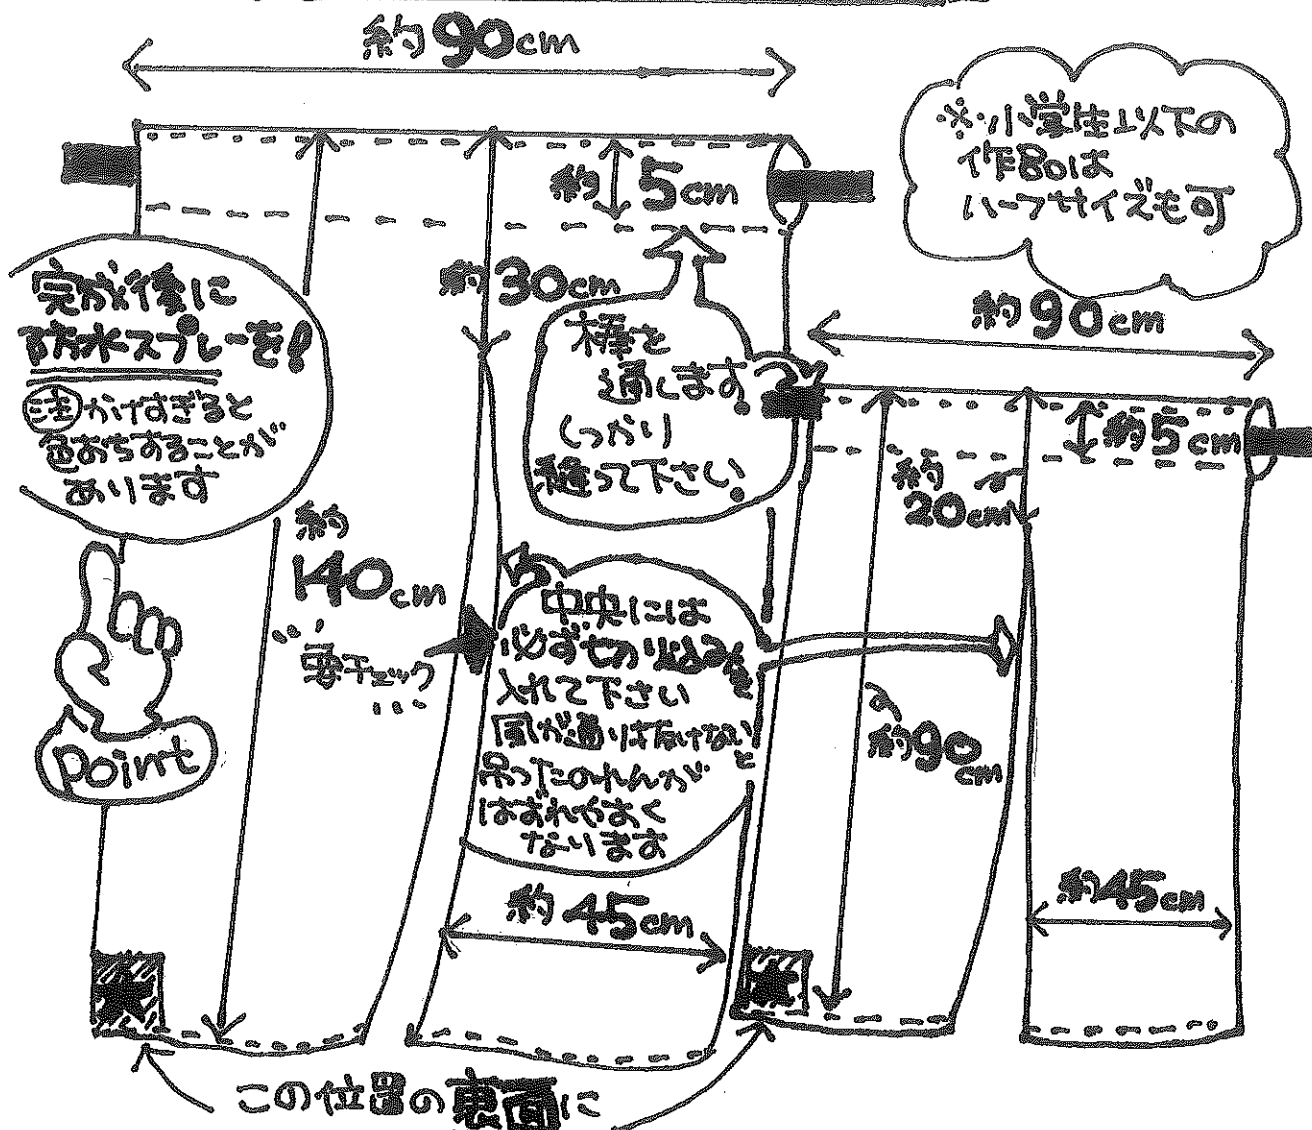 約90cm
約5cm
※小学生以下の
作品は
ハーフサイズも可
完成後に
防水スプレーを!
注かけすぎると
色おちすることが
あります
約30cm
棒を
通します。
しっかり
縫って下さい。
約90cm
約5cm
約
20cm
約
140cm
要チェック
中央には
必ず切り込みを
入れて下さい
風が通り抜けないと
吊ったのれんが
はずれやすく
なります
約90cm
point
約45cm
約45cm
この位置の裏面に